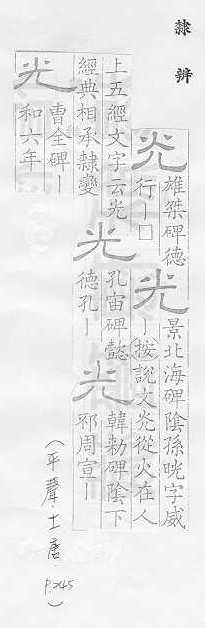 隸辨
炗
雄桀碑德
行｜□
光
景北海碑陰孫晄字威
｜(按說文炗從火在人
上五經文字云光
經典相承隸變
光
孔宙碑懿
德孔｜
光
韓勑碑陰下
邳周宣｜
光
曹全碑｜
和六年
(平聲.十一唐 P.245)